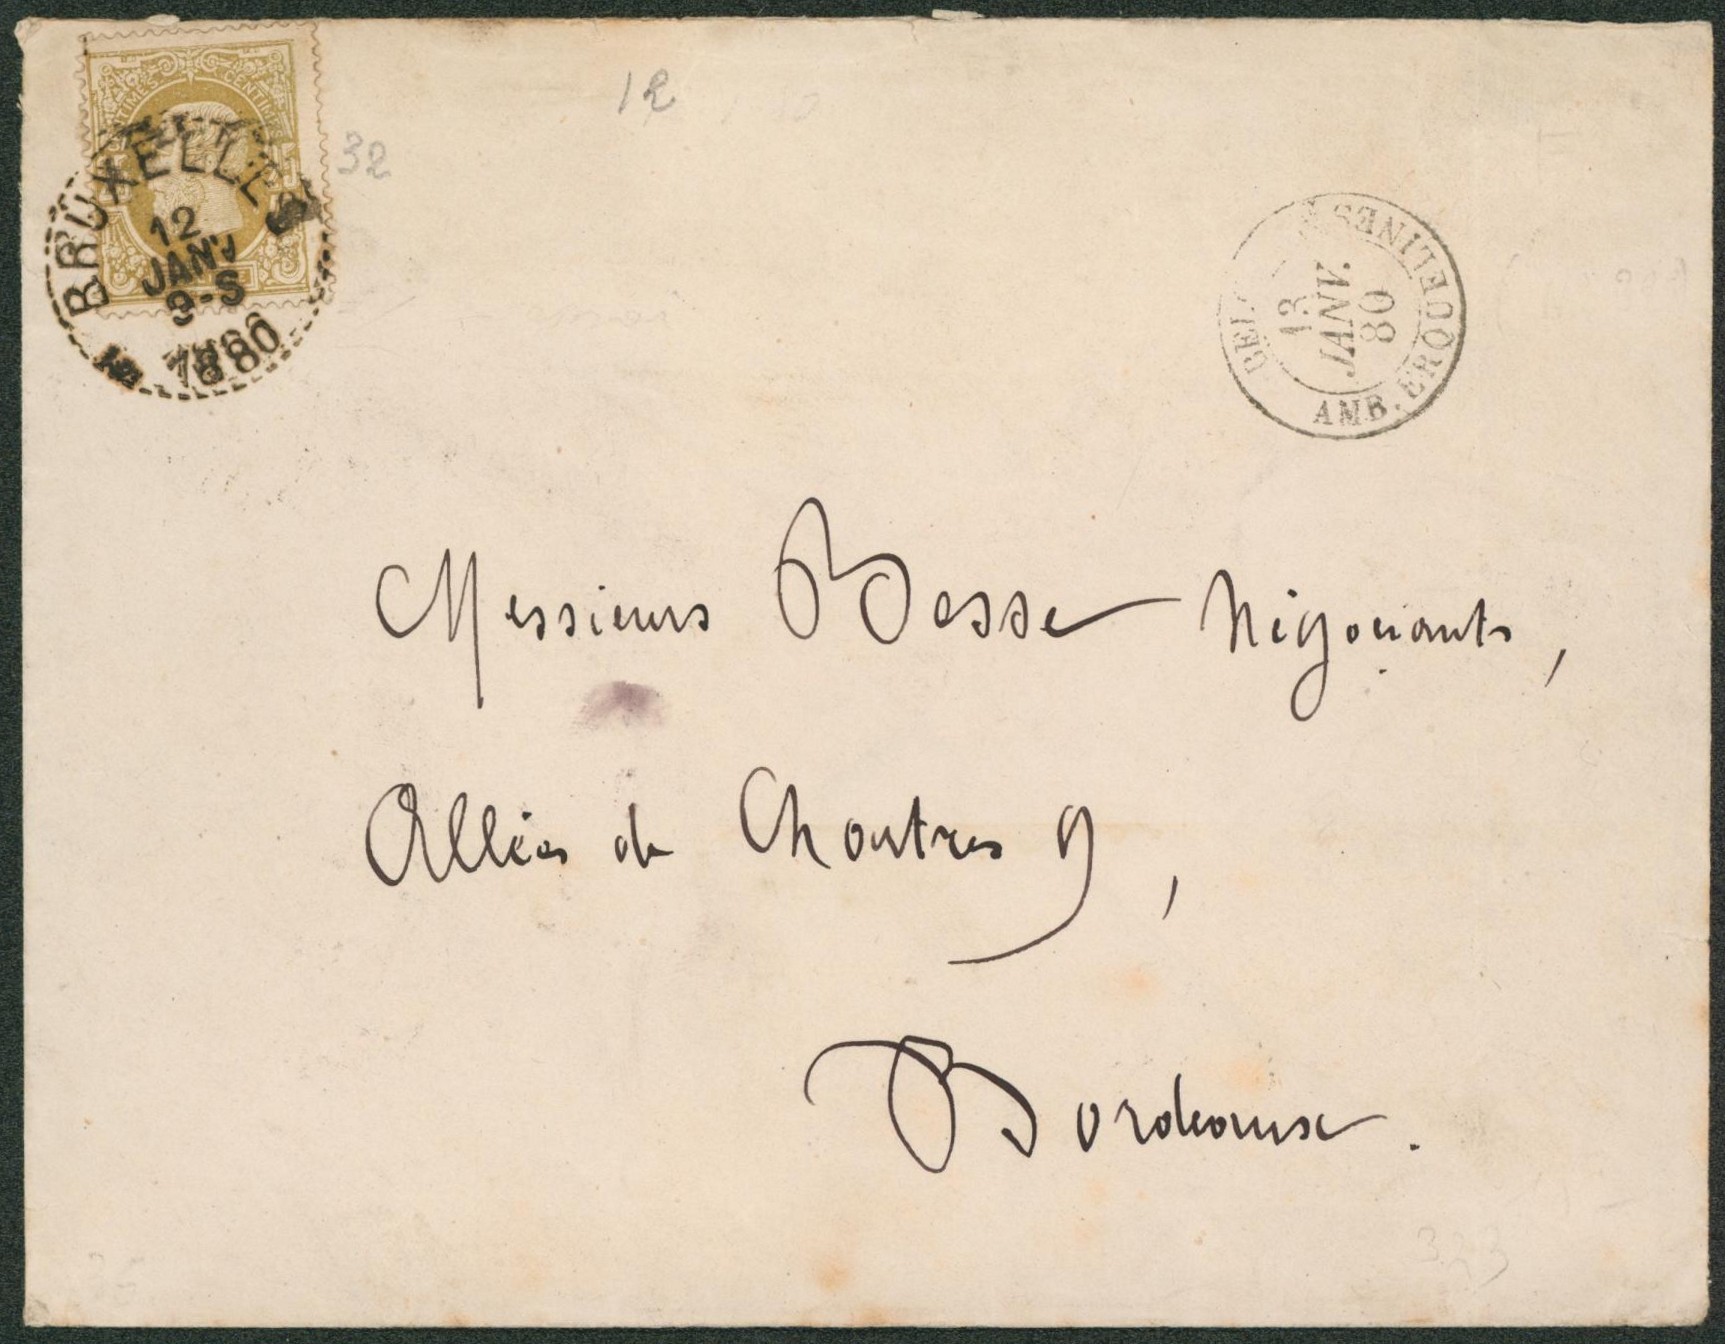 CENTIMES CENTIMES
BRUXELLES
12
JANV
9-S
1880
12
32
13
JANV.
80
AMB. ERQUELINES
Messieurs Besse Négociants,
Allées de Chartres 9,
Bordeaux.
323